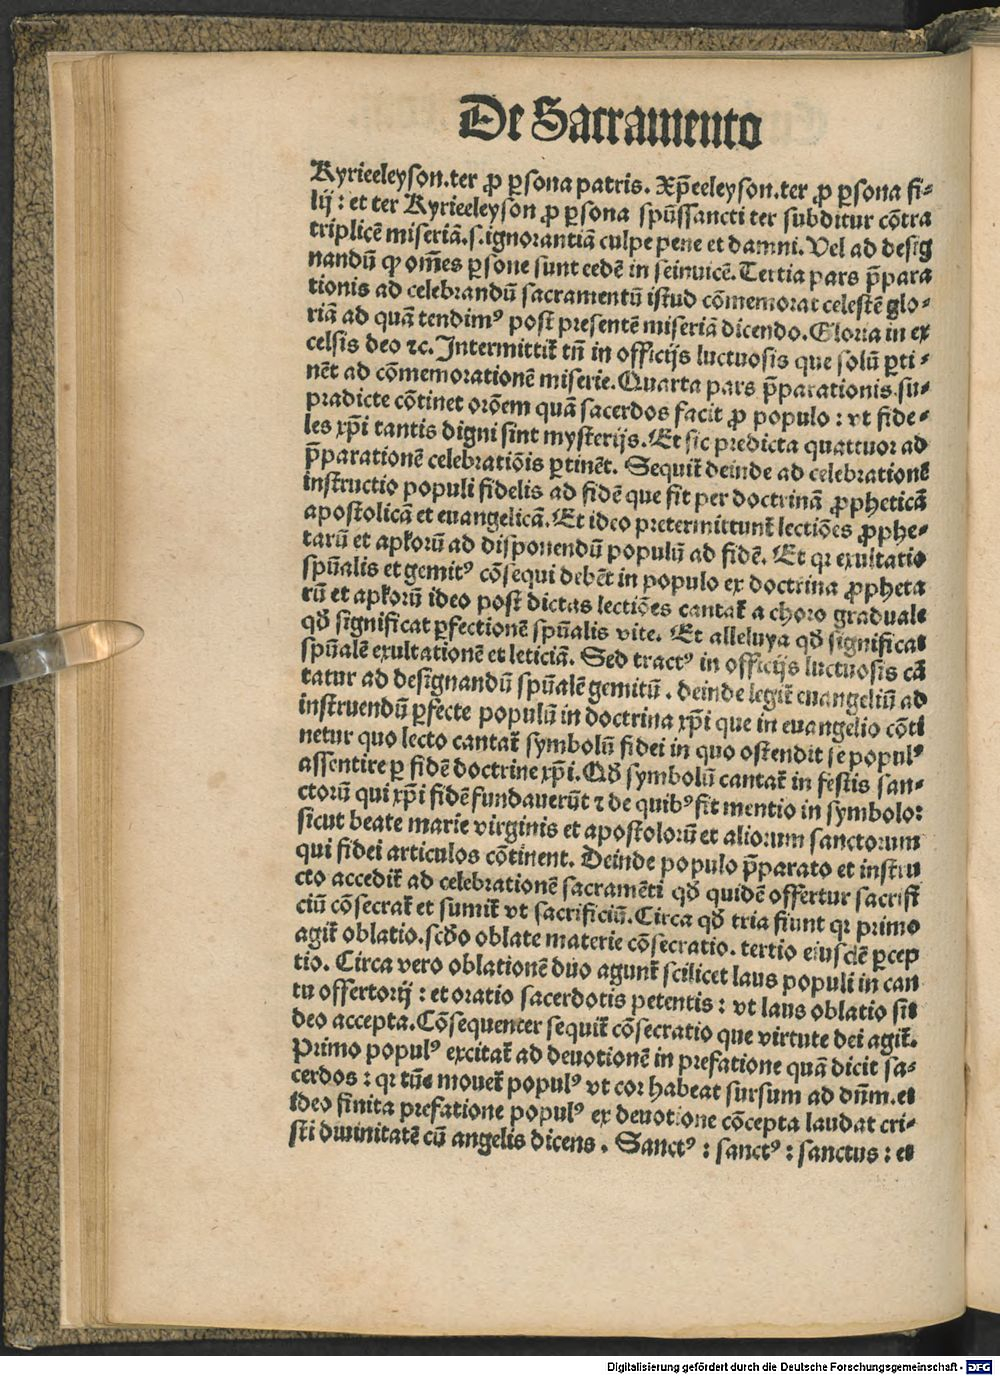 De Sacramento
Kyrieeleyson.ter ꝓ ꝑsona patris. Xp̄eeleyson.ter ꝓ ꝑsona fi⸗
lij : et ter Kyrieeleyson ꝓ ꝑsona spūssancti ter subditur cōtra
triplicē miseriā.s.ignorantiā culpe pene et damni. Vel ad desig
nandū ꝙ om̄es ꝑsone sunt cedē in seinuicē. Tertia pars p̄para
tionis ad celebrandū sacramentū istud cōmemorat celestē glo⸗
riā ad quā tendimꝰ post presentē miseriā dicendo. Gloria in ex
celsis deo ⁊c. Intermittit᷑ tn̄ in officijs luctuosis que solū ꝑti⸗
nēt ad cōmemorationē miserie. Quarta pars p̄parationis su⸗
pradicte cōtinet orōem quā sacerdos facit ꝓ populo : vt fide⸗
les xp̄i tantis digni sint mysterijs. Et sic predicta quattuor ad
p̄parationē celebratiōis ꝑtinēt. Sequit᷑ deinde ad celebrationē
instructio populi fidelis ad fidē que fit per doctrinā ꝓpheticā
apostolicā et euangelicā. Et ideo pretermittunt᷑ lectiōes ꝓphe⸗
tarū et apl̓orū ad disponendū populū ad fidē. Et qꝛ exultatio
spūalis et gemitꝰ cōsequi debēt in populo ex doctrina ꝓpheta
rū et apl̓orū ideo post dictas lectiōes cantat᷑ a choro graduale
qd̄ significat ꝑfectionē spūalis vite. Et alleluya qd̄ significat
spūalē exultationē et leticiā. Sed tractꝰ in officijs luctuosis cā
tatur ad designandū spūalē gemitū . deinde legit᷑ euangeliū ad
instruendū ꝑfecte populū in doctrina xp̄i que in euangelio cōti
netur quo lecto cantat᷑ symbolū fidei in quo ostendit se populꝰ
assentire ꝑ fidē doctrine xp̄i. Qd̄ symbolū cantat᷑ in festis san⸗
ctorū qui xp̄i fidē fundauerūt ⁊ de quibꝰ fit mentio in symbolo:
sicut beate marie virginis et apostolorū et aliorum sanctorum
qui fidei articulos cōtinent. Deinde populo p̄parato et instru
cto accedit᷑ ad celebrationē sacramēti qd̄ quidē offertur sacrifi
ciū cōsecrat᷑ et sumit᷑ vt sacrificiū. Circa qd̄ tria fiunt qꝛ primo
agit᷑ oblatio. scd̄o oblate materie cōsecratio. tertio eiusdē ꝑcep
tio. Circa vero oblationē duo agunt᷑ scilicet laus populi in can
tu offertorij : et oratio sacerdotis petentis : vt laus oblatio sit
deo accepta. Cōsequenter sequit᷑ cōsecratio que virtute dei agit᷑.
Primo populꝰ excitat᷑ ad deuotionē in prefatione quā dicit sa⸗
cerdos : qꝛ tūc mouet᷑ populꝰ vt cor habeat sursum ad dn̄m. et
ideo finita prefatione populꝰ ex deuotione cōcepta laudat cri⸗
sti diuinitatē cū angelis dicens . Sanctꝰ : sanctꝰ : sanctus : et
Digitalisierung gefördert durch die Deutsche Forschungsgemeinschaft - DFG